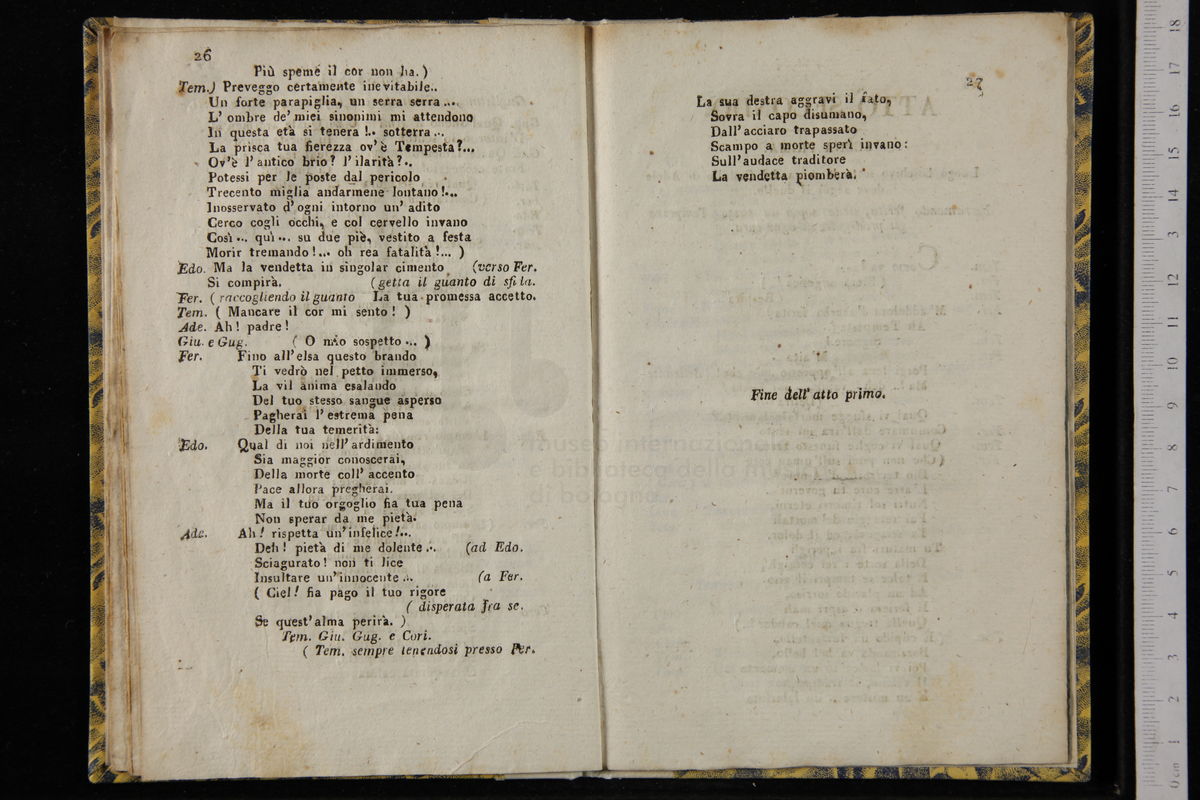 26
Più speme il cor non ha.)
Tem.) Preveggo certamente inevitabile..
Un forte parapiglia, un serra serra...
L' ombre de' miei sinonimi mi attendono
In questa età sì tenera!.. sotterra...
La prisca tua fierezza ov' è Tempesta?...
Ov'è l' antico brio? l' ilarità?..
Potessi per le poste dal pericolo
Trecento miglia andarmene lontano!...
Inosservato d' ogni intorno un' adito
Cerco cogli occhi, e col cervello invano
Così... quì... su due piè, vestito a festa
Morir tremando!... oh rea fatalità!... )
Edo. Ma la vendetta in singolar cimento (verso Fer.
Si compirà. (getta il guanto di sfida.
Fer. ( raccogliendo il guanto La tua promessa accetto.
Tem. ( Mancare il cor mi sento! )
Ade. Ah! padre!
Giu. e Gug. ( O mio sospetto... )
Fer. Fino all' elsa questo brando
Ti vedrò nel petto immerso,
La vil anima esalando
Del tuo stesso sangue asperso
Pagherai l' estrema pena
Della tua temerità:
Edo. Qual di noi nell' ardimento
Sia maggior conoscerai,
Della morte coll' accento
Pace allora pregherai.
Ma il tuo orgoglio fia tua pena
Non sperar da me pietà.
Ade. Ah! rispetta un' infelice!...
Deh! pietà di me dolente... (ad Edo.
Sciagurato! non ti lice
Insultare un' innocente... (a Fer.
( Ciel! fia pago il tuo rigore
( disperata fra se.
Se quest' alma perirà. )
Tem. Giu. Gug. e Cori.
( Tem. sempre tenendosi presso Fer.
27
La sua destra aggravi il fato,
Sovra il capo disumano,
Dall' acciaro trapassato
Scampo a morte speri invano:
Sull' audace traditore
La vendetta piomberà.
Fine dell' atto primo.
museo internazionale
e biblioteca della musica
di bologna